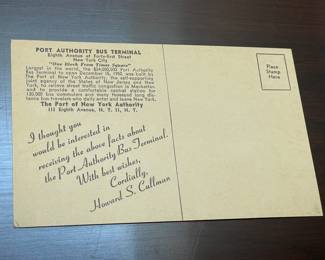 PORT AUTHORITY BUS TERMINAL
Eighth Avenue at Forty-first Street
New York City
"One Block From Times Square"
Largest in the world, the $24,000,000 Port Authority
Bus Terminal to open December 15, 1950, was built by
The Port of New York Authority, the self-supporting
joint agency of the States of New Jersey and New
York, to relieve street traffic congestion in Manhattan
and to provide a comfortable central station for
130,000 bus commuters and many thousand long dis-
tance bus travelers who daily enter and leave New York.
The Port of New York Authority
111 Eighth Avenue, N. Y. 11, N. Y.
I thought you
would be interested in
receiving the above facts about
the Port Authority Bus Terminal.
With best wishes,
Cordially,
Howard S. Cullman
Place
Stamp
Here